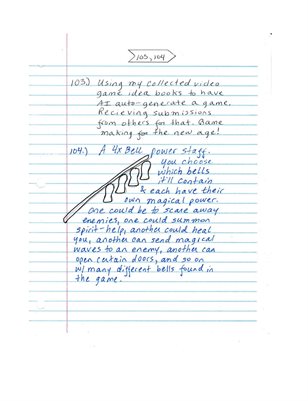 103, 104
103.) Using my collected video
game idea books to have
AI auto-generate a game.
Recieving submissions
from others for that. Game
making for the new age!
104.) A 4x Bell power staff.
You choose
which bells
it'll contain
& each have their
own magical power.
one could be to scare away
enemies, one could summon
spirit-help, another could heal
you, another can send magical
waves to an enemy, another can
open certain doors, and so on
w/ many different bells found in
the game.